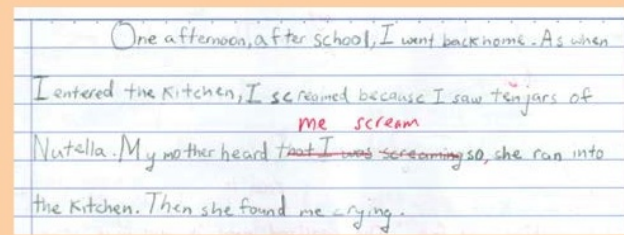 One afternoon, after school, I went back home. As when
I entered the kitchen, I screamed because I saw ten jars of
me scream
Nutella. My mother heard that I was screaming so, she ran into
the kitchen. Then she found me crying.